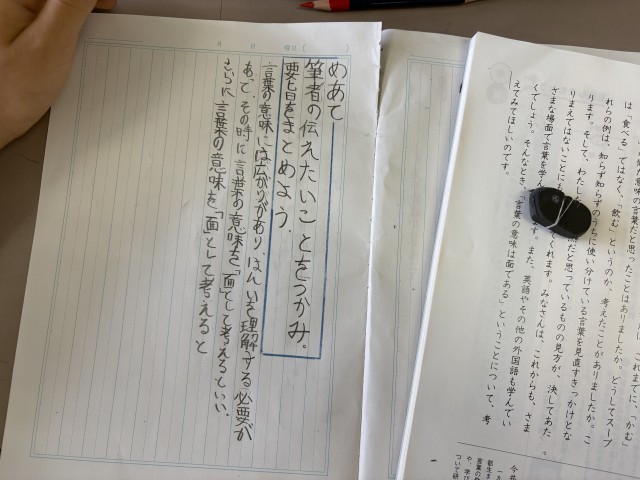 月 日 曜日(  )
めあて
筆者の伝えたいことをつかみ。
要旨をまとめよう.
言葉の意味には広がりがあり、はんいを理解する必要が
あって、その時に言葉の意味を「面」として考えるといい、
さらに言葉の意味を「面」として考えると
た意味の言葉だと思ったことはありましたか。これまでに、「かむ」
は「食べる」ではなく、「飲む」というのか、考えたことがありましたか。どうしてスープ
れらの例は、知らず知らずのうちに使い分けている言葉を見直すきっかけとな
ります。そして、わたし
りまえではないことにも
だと思っているものの見方が、決してあた
くれます。みなさんは、これからも、さま
ざまな場面で言葉を学ん
ます。また、英語やその他の外国語も学んでい
くでしょう。そんなとき、「言葉の意味は面である」ということについて、考
えてみてほしいのです。
今井
言葉の
や、学び
ついて研